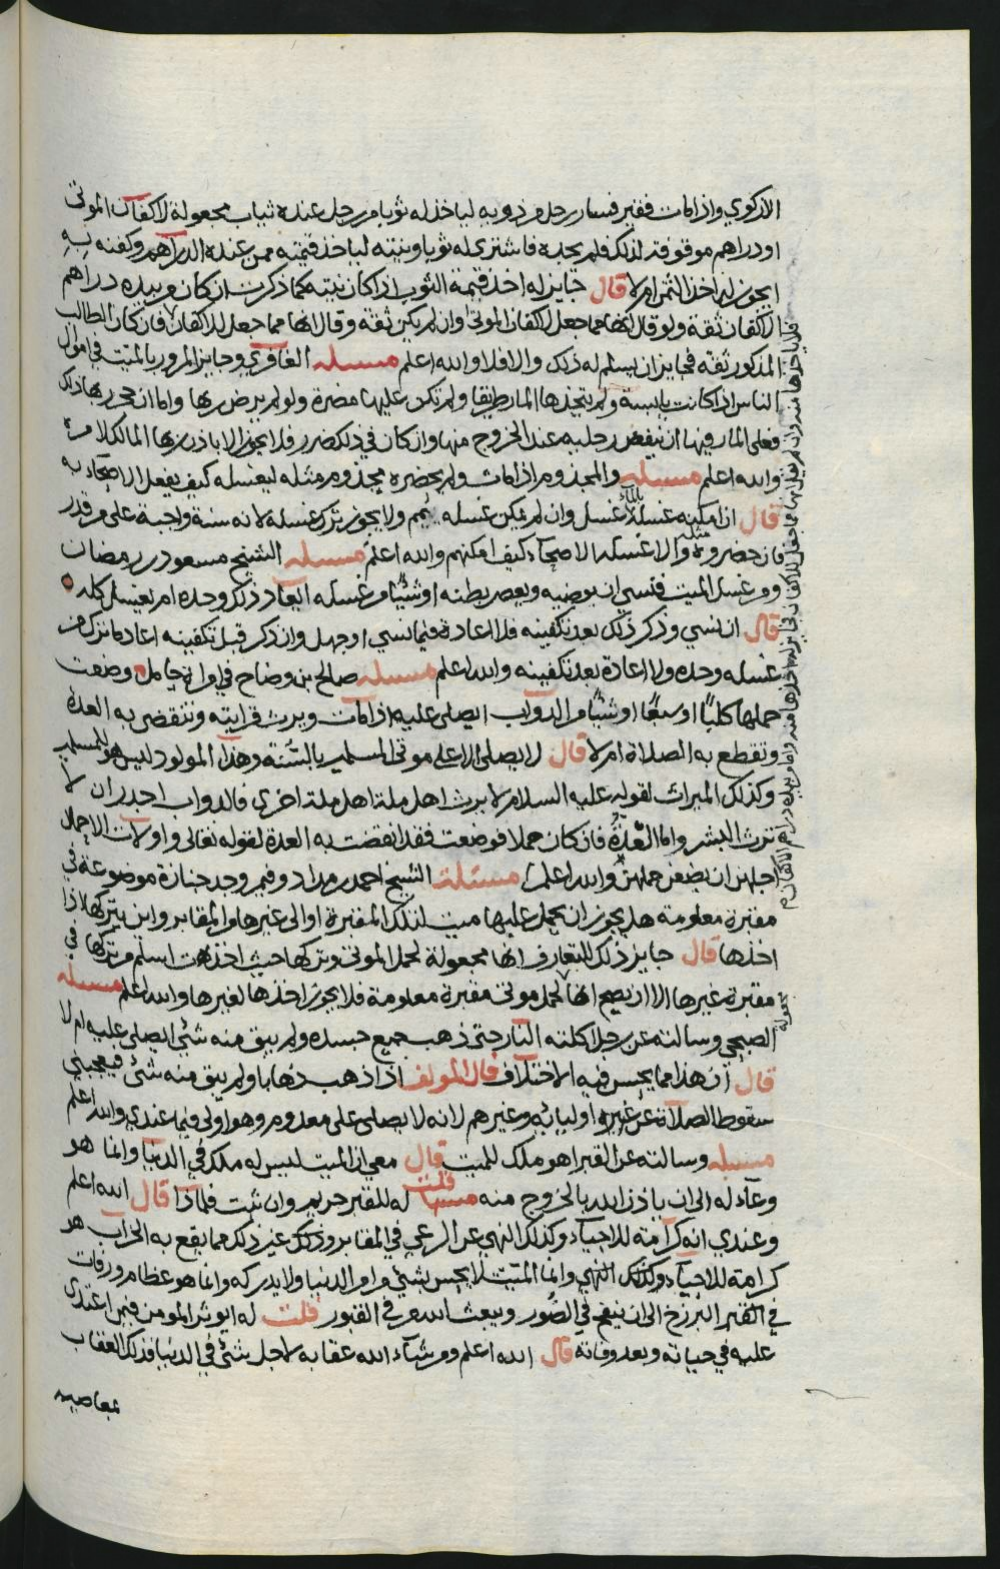 الازكوي واذا مات فقير فسار رجل من ذويه لياخذ له ثوبا من رجل عنده ثياب مجعولة لاكفان الموتى
او دراهم موقوفة لذلك فلم يجده فاشترى له ثوبا ونيته لياخذ قيمته ممن عنده الدراهم وكفنه به
ايجوز له اخذ الثمن ام لا قال جايز له اخذ قيمة الثوب اذا كان نيته كما ذكرت ان كان من بيده دراهم
الاكفان ثقة ولو قال انها مما جعل لاكفان الموتى وان لم يكن ثقة وقال انها مما جعل للاكفان فان كان الطالب
المذكور ثقة فجايز ان يسلم له ذلك والا فلا والله اعلم مسئله الغافري وجايز المرور بالميت في اموال
الناس اذا كانت يابسة ولم يتخذها المار طريقا ولم تكن عليها مضرة ولو لم يرض ربها واما ان حجر ربها ذلك
فعلى المار فيها ان ينفض رجليه عند الخروج منها وان كان في ذلك ضرر فلا يجوز الا باذن ربها المالك لامره
والله اعلم مسئله والمجذوم اذا مات ولم يحضره مجذوم مثله ليغسله كيف يفعل الاصحاء به
قال ان امكنه غسله بالماء غسل وان لم يمكن غسله يمم ولا يجوز ترك غسله لانه سنة واجبة على من قدر
فان حضروه مثله والا غسله الاصحاء كيف امكنهم والله اعلم مسئله الشيخ مسعود بن رمضان
ومن غسل الميت فنسي ان يوضيه ويعصر بطنه او شيئا من غسله ايعاد ذلك وحده ام يغسل كله
قال ان نسي وذكر ذلك بعد تكفينه فلا اعادة فيما نسي او جهل وان ذكر قبل تكفينه اعاد ما ترك من
غسله وحده ولا اعادة بعد تكفينه والله اعلم مسئله صالح بن وضاح في امراة حامل وضعت
حملها كلبا او سبعا او شيئا من الدواب ايصلى عليه اذا مات ويرث قرابته وتنقضي به العدة
وتقطع به الصلاة ام لا قال لا يصلى الا على موتى المسلمين بالسنة وهذا المولود ليس هو للمسلمين
وكذلك الميراث لقوله عليه السلام لا يرث اهل ملة اهل ملة اخرى فالدواب اجدر ان لا
ترث البشر واما العدة فان كان حملا فوضعت فقد انقضت به العدة لقوله تعالى واولات الاحمال
اجلهن ان يضعن حملهن والله اعلم مسئلة الشيخ احمد بن مداد وفيمن وجد جنازة موضوعة في
مقبرة معلومة هل يجوز ان يحمل عليها ميت لتلك المقبرة او الى غيرها من المقابر واين يتركها اذا
اخذها قال جايز ذلك للتعارف انها مجعولة لحمل الموتى وتركها حيث اخذت اسلم من تركها في
مقبرة غيرها الا ان يصح انها مجعولة لحمل موتى مقبرة معلومة فلا يجوز اخذها لغيرها والله اعلم مسئله
الصبحي وسالته عن رجل اكلته النار حتى ذهب جميع جسده ولم يبق منه شئ ايصلى عليه ام لا
قال ان هذا مما يحسن فيه الاختلاف قال المولف اذا ذهب ذهابا ولم يبق منه شئ فيعجبني
سقوط الصلاة عن غيره اوليائه وغيرهم لانه لا يصلى على معدوم وهو اولى فيما عندي والله اعلم
مسئله وسالته عن القبر اهو ملك للميت قال معي ان الميت ليس له ملك في الدنيا وانما هو
وعاء له الى ان ياذن الله بالخروج منه قلت له للقبر حريم وان ثبت فلماذا قال الله اعلم
وعندي انه كرامته للاحياء وكذلك النهي عن الرعي في المقابر وذلك غير ذلك مما يقع به الخراب هو
كرامة للاحياء وكذلك النهي وانما الميت لا يحس بشئ من امر الدنيا ولا يدركه وانما هو عظام ورفات
في القبر البرزخ الى ان ينفخ في الصور ويبعث الله من في القبور قلت له ايوثر المومن فيمن اعتدى
عليه في حياته وبعد وفاته قال الله اعلم ومن شاء الله عقابه لاجل شئ في الدنيا فذلك العقاب
بمعاصيه